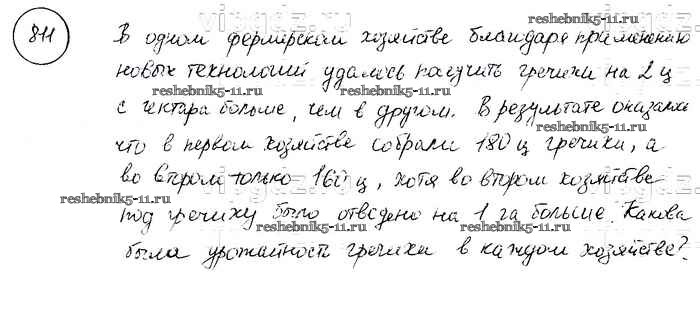 811
В одном фермерском хозяйстве благодаря применению
новых технологий удалось получить гречихи на 2 ц
с гектара больше, чем в другом. В результате оказалось
что в первом хозяйстве собрали 180 ц гречихи, а
во втором только 160 ц, хотя во втором хозяйстве
под гречиху было отведено на 1 га больше. Какова
была урожайность гречихи в каждом хозяйстве?
reshebnik5-11.ru
reshebnik5-11.ru
reshebnik5-11.ru
reshebnik5-11.ru
reshebnik5-11.ru
reshebnik5-11.ru
reshebnik5-11.ru
reshebnik5-11.ru
reshebnik5-11.ru